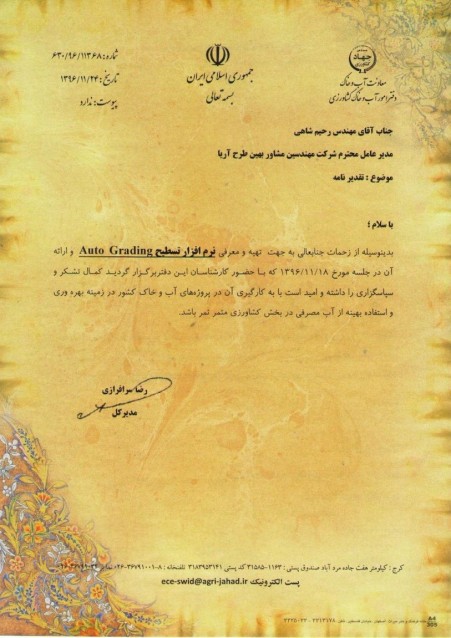 جهاد
کشاورزی
معاونت آب و خاک
دفتر امور آب و خاک کشاورزی
جمهوری اسلامی ایران
بسمه تعالی
شماره: ۶۳۰/۹۶/۱۱۳۶۸
تاریخ: ۱۳۹۶/۱۱/۲۴
پیوست: ندارد
جناب آقای مهندس رحیم شاهی
مدیر عامل محترم شرکت مهندسین مشاور بهین طرح آریا
موضوع : تقدیر نامه
با سلام ؛
بدینوسیله از زحمات جنابعالی به جهت تهیه و معرفی نرم افزار تسطیح Auto Grading و ارائه
آن در جلسه مورخ ۱۳۹۶/۱۱/۱۸ که با حضور کارشناسان این دفتر برگزار گردید کمال تشکر و
سپاسگزاری را داشته و امید است با به کارگیری آن در پروژه‌های آب و خاک کشور در زمینه بهره وری
و استفاده بهینه از آب مصرفی در بخش کشاورزی مثمر ثمر باشد.
رضا سرافرازی
مدیر کل
کرج : کیلومتر هفت جاده مرد آباد صندوق پستی : ۱۱۶۳-۳۱۵۸۵ کد پستی ۳۱۸۳۹۵۳۱۴۱ تلفنخانه : ۸-۳۶۷۹۱۰۰۱-۰۲۶
پست الکترونیک ece-swid@agri-jahad.ir
A4